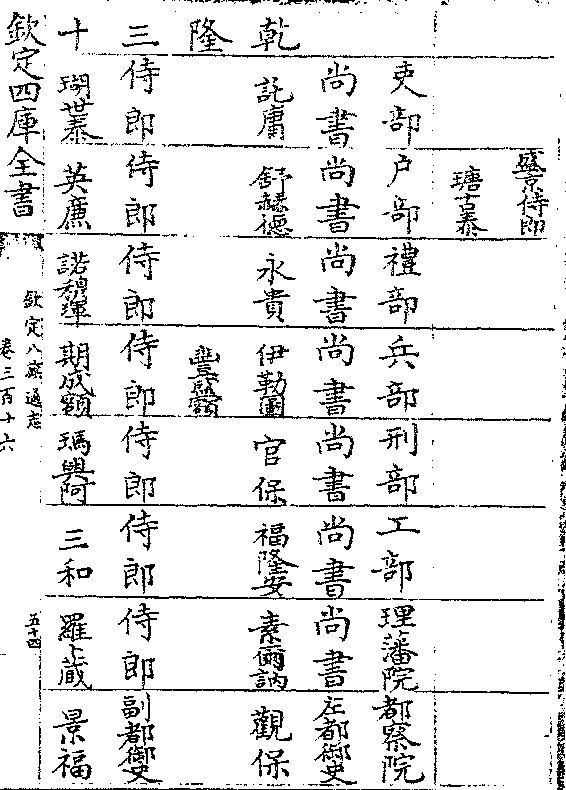 盛京侍郎
瑭古泰
吏部 户部 禮部 兵部 刑部 工部 理藩院 都察院
尚書 尚書 尚書 尚書 尚書 尚書 尚書 左都御史
乾 託庸 舒赫德 永貴 伊勒圖 官保 福隆安 素爾訥 觀保
隆 豐盛額
三 侍郎 侍郎 侍郎 侍郎 侍郎 侍郎 侍郎 副都御史
十 瑚世泰 英廉 諾穆琿 期成額 瑪興阿 三和 羅卜藏 景福
欽定四庫全書
欽定八旗通志
卷三百十六
五十四